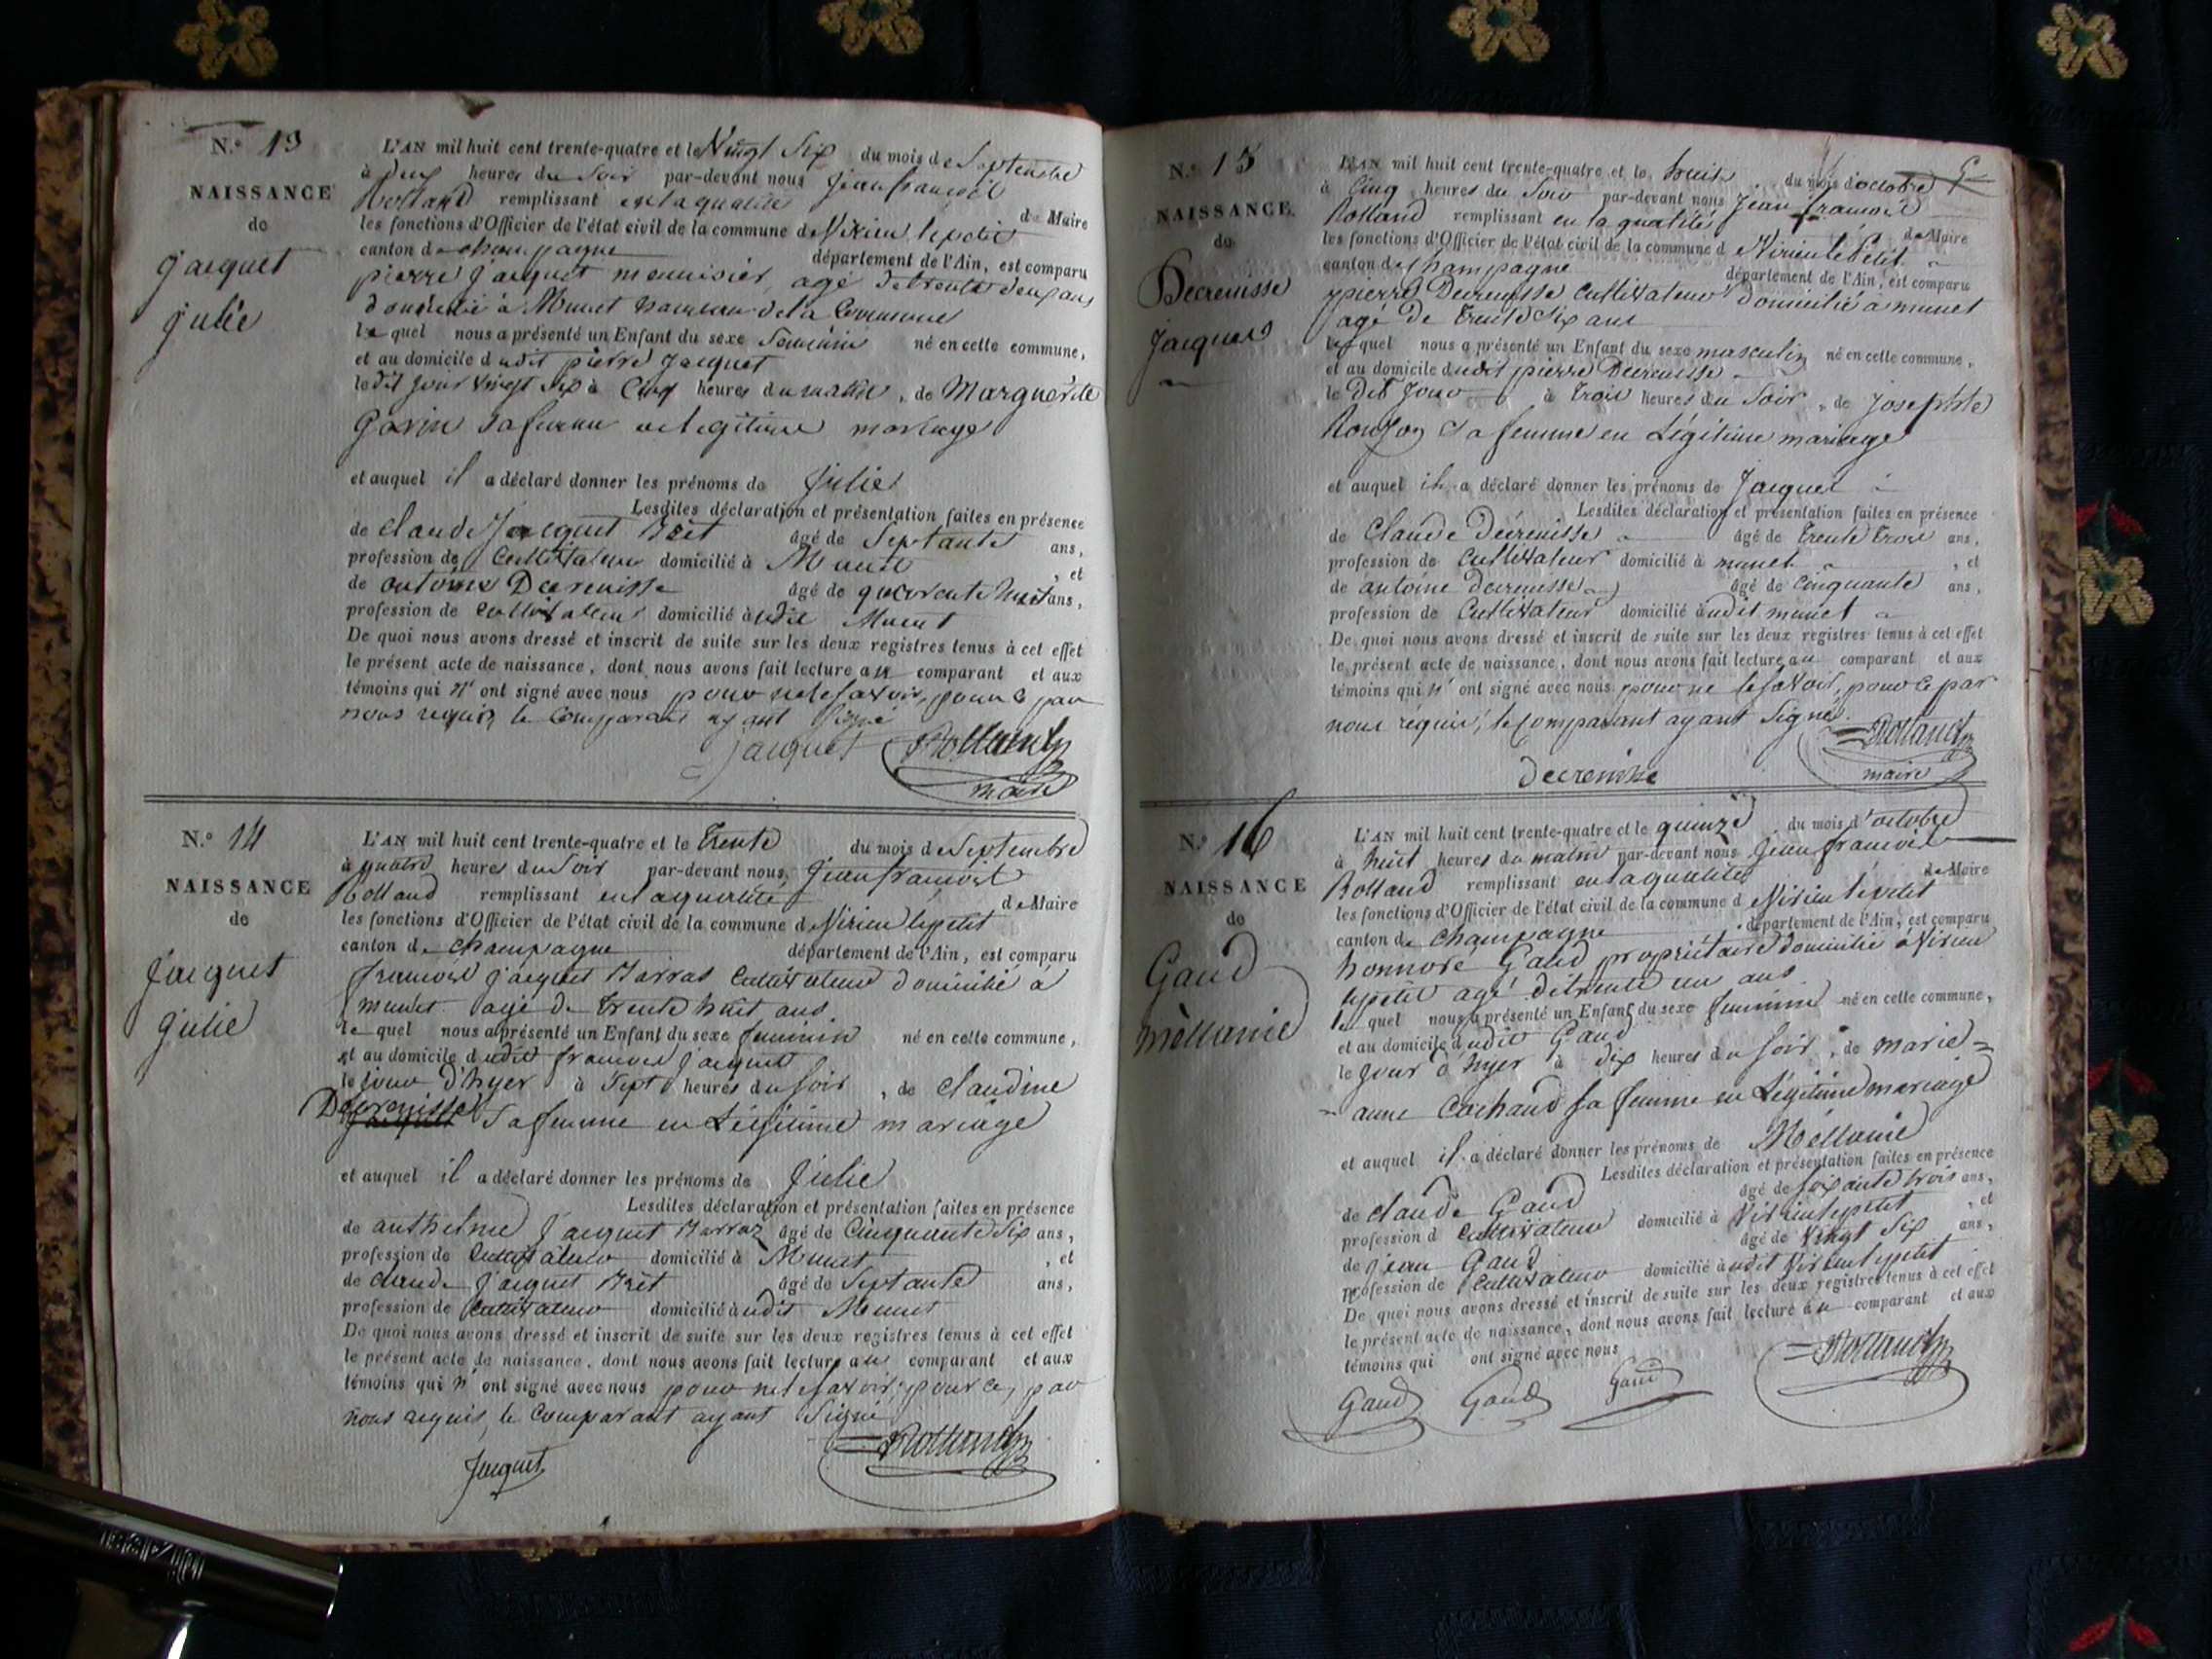 N.º 13
NAISSANCE
de
Jacquet
Julie
L'AN mil huit cent trente-quatre et le Vingt Six du mois de Septembre
à deux heures du Soir par-devant nous Jean françois
Rolland remplissant en la qualité de Maire
les fonctions d'Officier de l'état civil de la commune de Virieu le petit
canton de champagne département de l'Ain, est comparu
pierre Jacquet menuisier, agé de trente deux ans
domicilié à Munet hameau de la Commune
le quel nous a présenté un Enfant du sexe feminin né en cette commune,
et au domicile dudit pierre Jacquet
le dit jour vingt six à Cinq heures du matin, de Marguerite
Gavin sa femme en legitime mariage
et auquel il a déclaré donner les prénoms de Julie
Lesdites déclaration et présentation faites en présence
de claude Jacquet âgé de Septante ans,
profession de Cultivateur domicilié à Munet, et
de antoine Decrenisse âgé de quarante huit ans,
profession de Cultivateur domicilié à udit Munet
De quoi nous avons dressé et inscrit de suite sur les deux registres tenus à cet effet
le présent acte de naissance, dont nous avons fait lecture au comparant et aux
témoins qui n' ont signé avec nous pour ne le savoir, pour ce par
nous requis, le Comparant ayant Signé
Jacquet Rolland
maire
N.º 14
NAISSANCE
de
Jacquet
Julie
L'AN mil huit cent trente-quatre et le trente du mois de Septembre
à quatre heures du Soir par-devant nous, Jean françois
Rolland remplissant en la qualité de Maire
les fonctions d'Officier de l'état civil de la commune de Virieu le petit
canton de Champagne département de l'Ain, est comparu
françois Jacquet Barras Cultivateur domicilié à
munet agé de trente huit ans.
le quel nous a présenté un Enfant du sexe feminin né en cette commune,
et au domicile dudit françois Jacquet
le jour d'hyer à Sept heures du Soir, de Claudine
Decrenisse Sa femme en Légitime mariage
et auquel il a déclaré donner les prénoms de Julie
Lesdites déclaration et présentation faites en présence
de anthelme Jacquet Barraz âgé de Cinquante Six ans,
profession de Cultivateur domicilié à Munet, et
de claude Jacquet âgé de Septante ans,
profession de Cultivateur domicilié à udit Munet
De quoi nous avons dressé et inscrit de suite sur les deux registres tenus à cet effet
le présent acte de naissance, dont nous avons fait lecture au comparant et aux
témoins qui n' ont signé avec nous pour ne le savoir, pour ce, par
nous requis, le Comparant ayant Signé
Jacquet Rolland
N.º 15
NAISSANCE
de
Decrenisse
Jacques
L'AN mil huit cent trente-quatre et le huit du mois d'octobre
à Cinq heures du Soir par-devant nous Jean françois
Rolland remplissant en la qualité de Maire
les fonctions d'Officier de l'état civil de la commune d Virieu le Petit
canton de Champagne département de l'Ain, est comparu
pierre Decrenisse Cultivateur domicilié à munet
agé de trente Six ans
le quel nous a présenté un Enfant du sexe masculin né en cette commune,
et au domicile dudit pierre Decrenisse
le Dit Jour à trois heures du Soir, de Josephte
Sa femme en Légitime mariage
et auquel il a déclaré donner les prénoms de Jacques
Lesdites déclaration et présentation faites en présence
de Claude Décrenisse âgé de trente trois ans,
profession de Cultivateur domicilié à munet, et
de antoine Decrenisse âgé de cinquante ans,
profession de Cultivateur domicilié à udit munet
De quoi nous avons dressé et inscrit de suite sur les deux registres tenus à cet effet
le présent acte de naissance, dont nous avons fait lecture au comparant et aux
témoins qui n' ont signé avec nous pour ne le savoir, pour ce par
nous réquis, le Comparant ayant Signé.
Rolland
Decrenisse maire
N.º 16
NAISSANCE
de
Gaud
Mèllanie
L'AN mil huit cent trente-quatre et le quinze du mois d'octobre
à huit heures du matin par-devant nous Jean françois
Rolland remplissant en la qualité de Maire
les fonctions d'Officier de l'état civil de la commune d Virieu le petit
canton de Champagne département de l'Ain, est comparu
honnoré Gaud propriétaire domicilié à Virieu
le petit agé de trente un ans
le quel nous a présenté un Enfant du sexe feminin né en cette commune,
et au domicile dudit Gaud
le Jour d'hyer à dix heures du soir, de marie=
=anne Cochaud sa femme en Légitime mariage
et auquel il a déclaré donner les prénoms de Mèllanie
Lesdites déclaration et présentation faites en présence
de claude Gaud âgé de soixante trois ans,
profession d Cultivateur domicilié à Virieu le petit, et
de jean Gaud âgé de Vingt Six ans,
profession de Cultivateur domicilié à udit Virieu le petit
De quoi nous avons dressé et inscrit de suite sur les deux registres tenus à cet effet
le présent acte de naissance, dont nous avons fait lecture au comparant et aux
témoins qui ont signé avec nous
Gaud Gaud Gaud Rolland